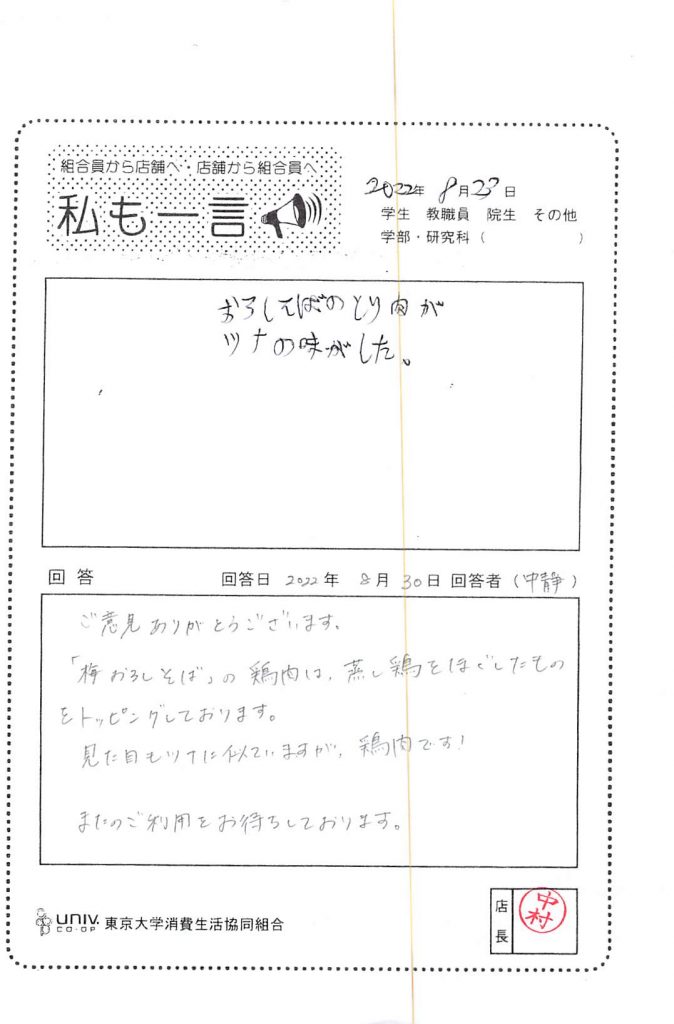 組合員から店舗へ・店舗から組合員へ
私も一言
2022年 8月23日
学生 教職員 院生 その他
学部・研究科( )
おろしそばのとり肉が
ツナの味がした。
回答 回答日 2022年 8月30日 回答者(中静)
ご意見ありがとうございます。
「梅おろしそば」の鶏肉は、蒸し鶏をほぐしたもの
をトッピングしております。
見た目もツナに似ていますが、鶏肉です!
またのご利用をお待ちしております。
UNIV. CO-OP 東京大学消費生活協同組合
店長 中村